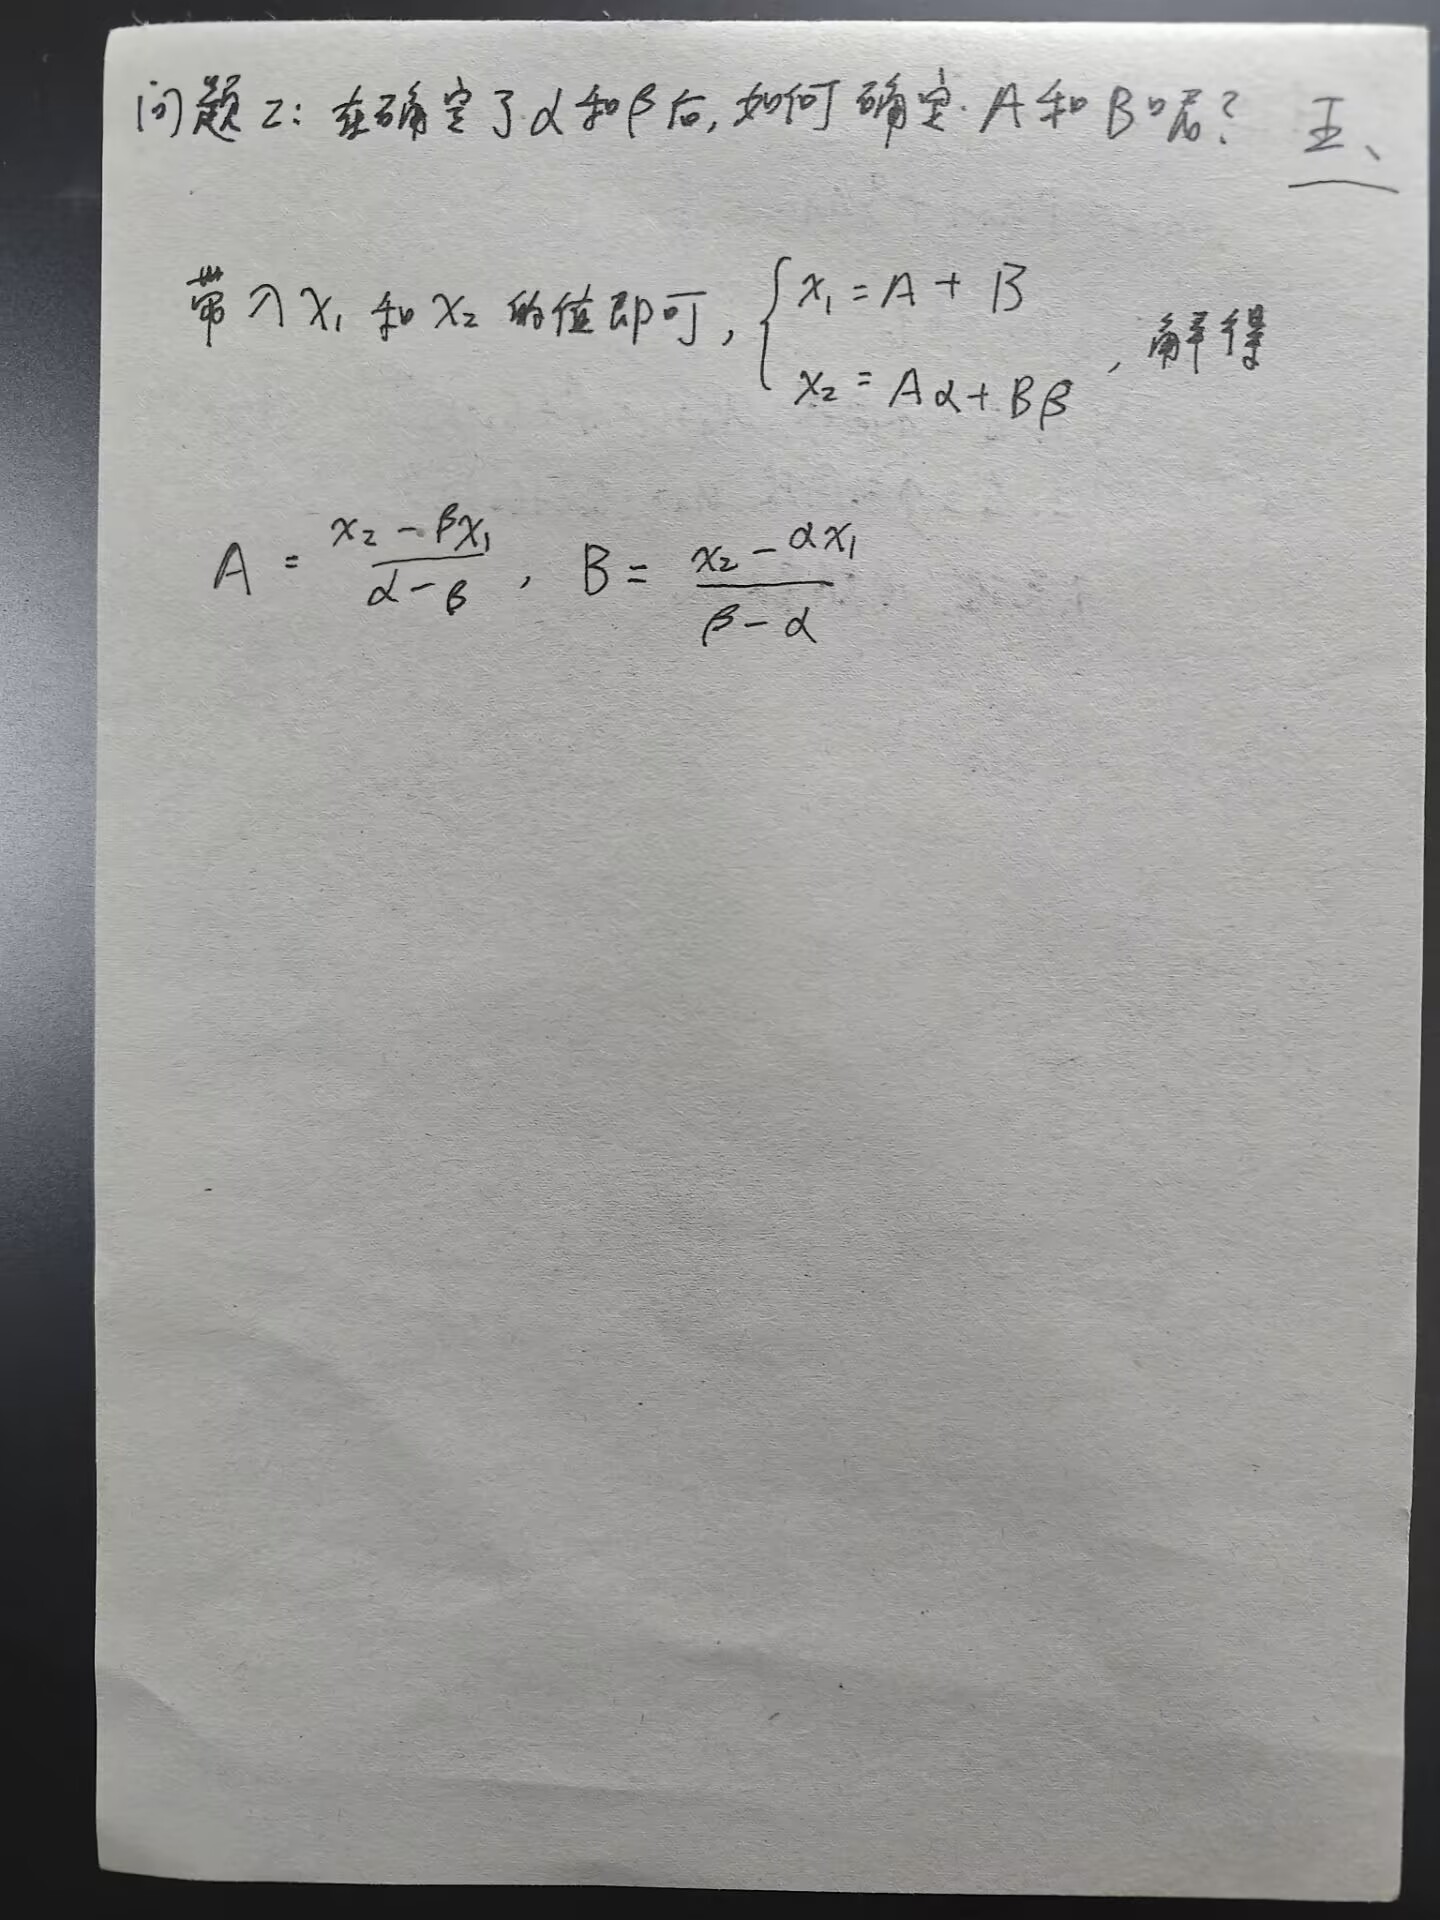 问题2：在确定了α和β后，如何确定A和B呢？ 五、
带入x₁和x₂的值即可，{x₁=A+B, x₂=Aα+Bβ，解得
A=(x₂-βx₁)/(α-β)，B=(x₂-αx₁)/(β-α)